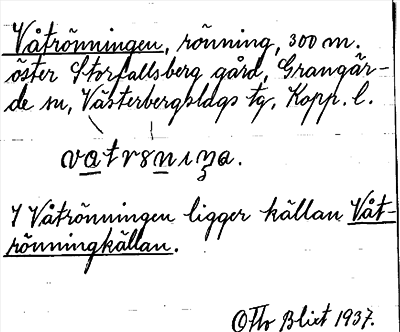 Våtrönningen, rönning, 300 m.
öster Storfallsberg gård, Grangär-
de sn, Västerbergslags tg, Kopp. l.
vatrönıŋa.
I Våtrönningen ligger källan Våt-
rönningkällan.
Otto Blixt 1937.